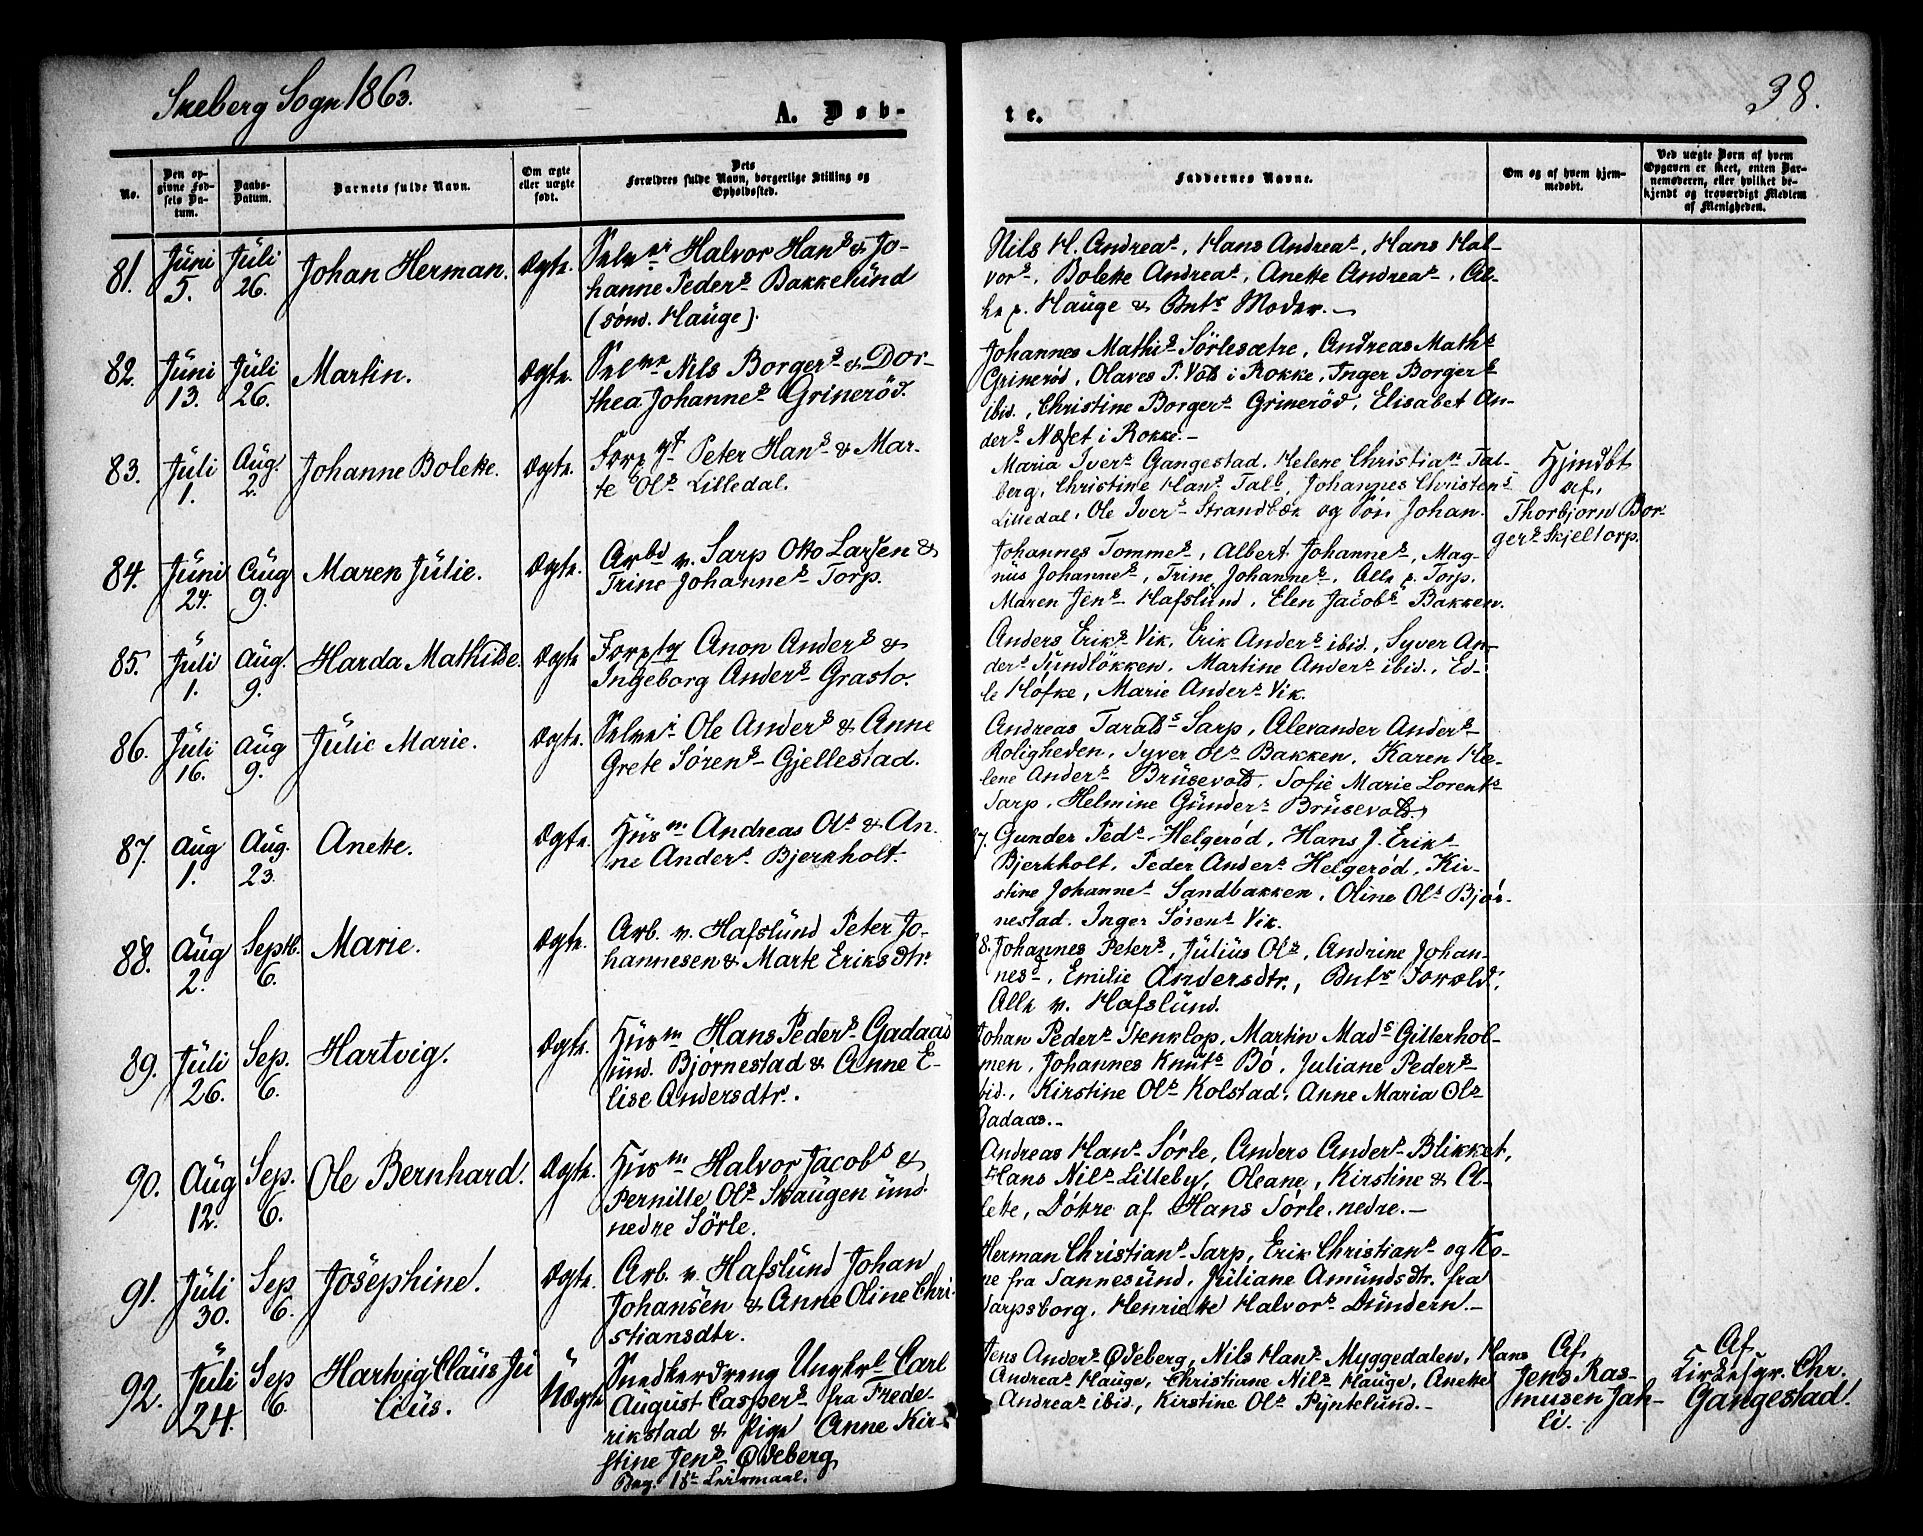 Skeberg Sogn 1863.
A. Døb-
te.
38.
No.
Den op-
givne Fød-
sels Da-
tum.
Daabs-
Datum.
Barnets fulde Navn.
Om ægte
eller uægte
født.
Dets
Forældres fulde Navn, borgerlige Stilling og
Opholdssted.
Faddernes Navne.
Om og af hvem hjem-
medøbt.
Ved uægte Børn af hvem
Opgaven er skeet, enten Bar-
nemoderen, eller hvilket be-
kjendt og troværdigt Medlem
af Menigheden.
81. Juni
5.
Juli
26.
Johan Herman.
Ægte.
Halvor Hans & Jo-
hanne Peders Bakkelund
(sønd. Hauge).
Nils H. Andreas, Hans Andreas, Hans Hal-
vors, Bolette Andreas, Anette Andreas, Al-
le p. Hauge & Bnts Moder. —
82. Juni
13.
Juli
26.
Martin.
Ægte.
Nils Borgers & Dor-
thea Johannes Grinerød.
Johannes Mathis Sørlesætre, Andreas Maths
Grinerød, Olaves P. Vold i Rokke, Inger Borgers
ibid., Christine Borgers Grinerød, Elisabet An-
ders Næset i Rokke. —
83. Juli
1.
Aug.
2.
Johanne Bolette.
Ægte.
Peter Hans & Mar-
te Ols Lilledal.
Maria Ivers Gangestad, Helene Christian Tal-
berg, Christine Hans Talb, Johannes Christens
Lilledal, Ole Ivers Strandbæk og Søn Johan.
Hjmdbt
af.
Thorbjørn Bor-
gers Skjeltorp.
84. Juni
24.
Aug
9.
Maren Julie.
Ægte.
Arbd v. Sarp Otto Larsen &
Trine Johannes Torp.
Johannes Tommes, Albert Johannes, Mag-
nus Johannes, Trine Johannes, Alle p. Torp.
Maren Jens Hafslund, Elen Jacobs Bakken.
85. Juli
1.
Aug.
9.
Harda Mathilde.
Ægte
Anon Anders &
Ingeborg Anders Grasto.
Anders Eriks Vik, Erik Anders ibid., Syver An-
ders Sundløkken, Martine Anders ibid., Ed-
le Høfke, Marie Anders Vik.
86. Juli
16.
Aug
9.
Julie Marie.
Ægte.
Ole Anders & Anne
Grete Sørens Gjellestad.
Andreas Taralds Sarp, Alexander Anders
Roligheden, Syver Ols Bakken, Karen He-
lene Anders Brusevold, Sofie Marie Lorents
Sarp, Helmine Gunders Brusevold
87. Aug
1.
Aug.
23.
Anette.
Ægte.
Husm Andreas Ols & An-
ne Anders Bjerkholt.
87. Gunder Peds Helgerød, Hans J. Eriks
Bjerkholt, Peder Anders Helgerød, Kir-
stine Johannes Sandbakken, Oline Ols Bjør-
nestad. Inger Sørens Vik.
88. Aug
2.
Septb.
6.
Marie.
Ægte.
Arb. v. Hafslund Peter Jo-
hannesen & Marte Eriksdtr.
88. Johannes Peters, Julius Ols, Andrine Johan-
nesd, Emilie Andersdtr., Bnts Foræld.
Alle v. Hafslund.
89. Juli
26.
Sep.
6.
Hartvig.
Ægte.
Husm Hans Peders Gadaas
und. Bjørnestad & Anne E-
lise Andersdtr.
Johan Peders Stenklop, Martin Mads Gitterhol-
men, Johannes Knuts Bø, Juliane Peders
ibid., Kirstine Ols Kolstad, Anne Maria Ols
Gadaas. —
90. Aug
12.
Sep.
6.
Ole Bernhard.
Ægte.
Husm Halvor Jacobs &
Pernille Ols Skaugen und.
nedre Sørle.
Andreas Hans Sørle, Anders Anders Blikket,
Hans Nils Lilleby, Oleane, Kirstine & A-
lette, Døtre af Hans Sørle nedre. —
91. Juli
30.
Sep
6.
Josephine.
Ægte.
Arb. v. Hafslund Johan
Johansen & Anne Oline Chri-
stiansdtr.
Herman Christians Sarp, Erik Christians og Ko-
ne fra Sannesund, Juliane Amundsdtr. fra
Sarpsborg, Henriette Halvors Dundern. —
92. Juli
24.
Sep
6.
Hartvig Claus Ju
lius.
Uægte
Snedkerdreng Ungkrl Carl
August Caspers fra Frede-
rikstad & Pige Anne Kir-
stine Jens Ødeberg
Beg. 1ste Leiermaal.
Jens Anders Ødeberg, Nils Hans Myggedalen, Hans
Andreas Hauge, Christiane Nils Hauge, Anette
Andreas ibid., Kirstine Ols Pyntelund. —
Af
Jens Ras-
musen Jah-
li.
Af
Kirkesgr. Chr.
Gangestad.